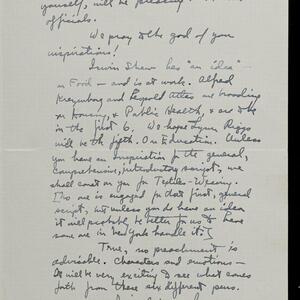 yourself, will be
officials.
We pray to the god of your
inspirations!
Irwin Shaw has "an idea" —
on Food — and is at work. Alfred
Kreymborg and Leopold Atlas are brooding
on Housing, & Public Health, & are to be
in the first 6. We hope Lynn Riggs
will be the fifth. On Education. Unless
you have an inspiration for the general,
comprehensive, introductory script, we
shall count on you for Textiles – Weaving.
are engaged on that first, general
script, but unless you do have an idea
it will probably be better for us to have
some one in New York handle it.)
True, no preachment is
advisable. Characters and emotions —
It will be very exciting to see what comes
forth from these six different pens.